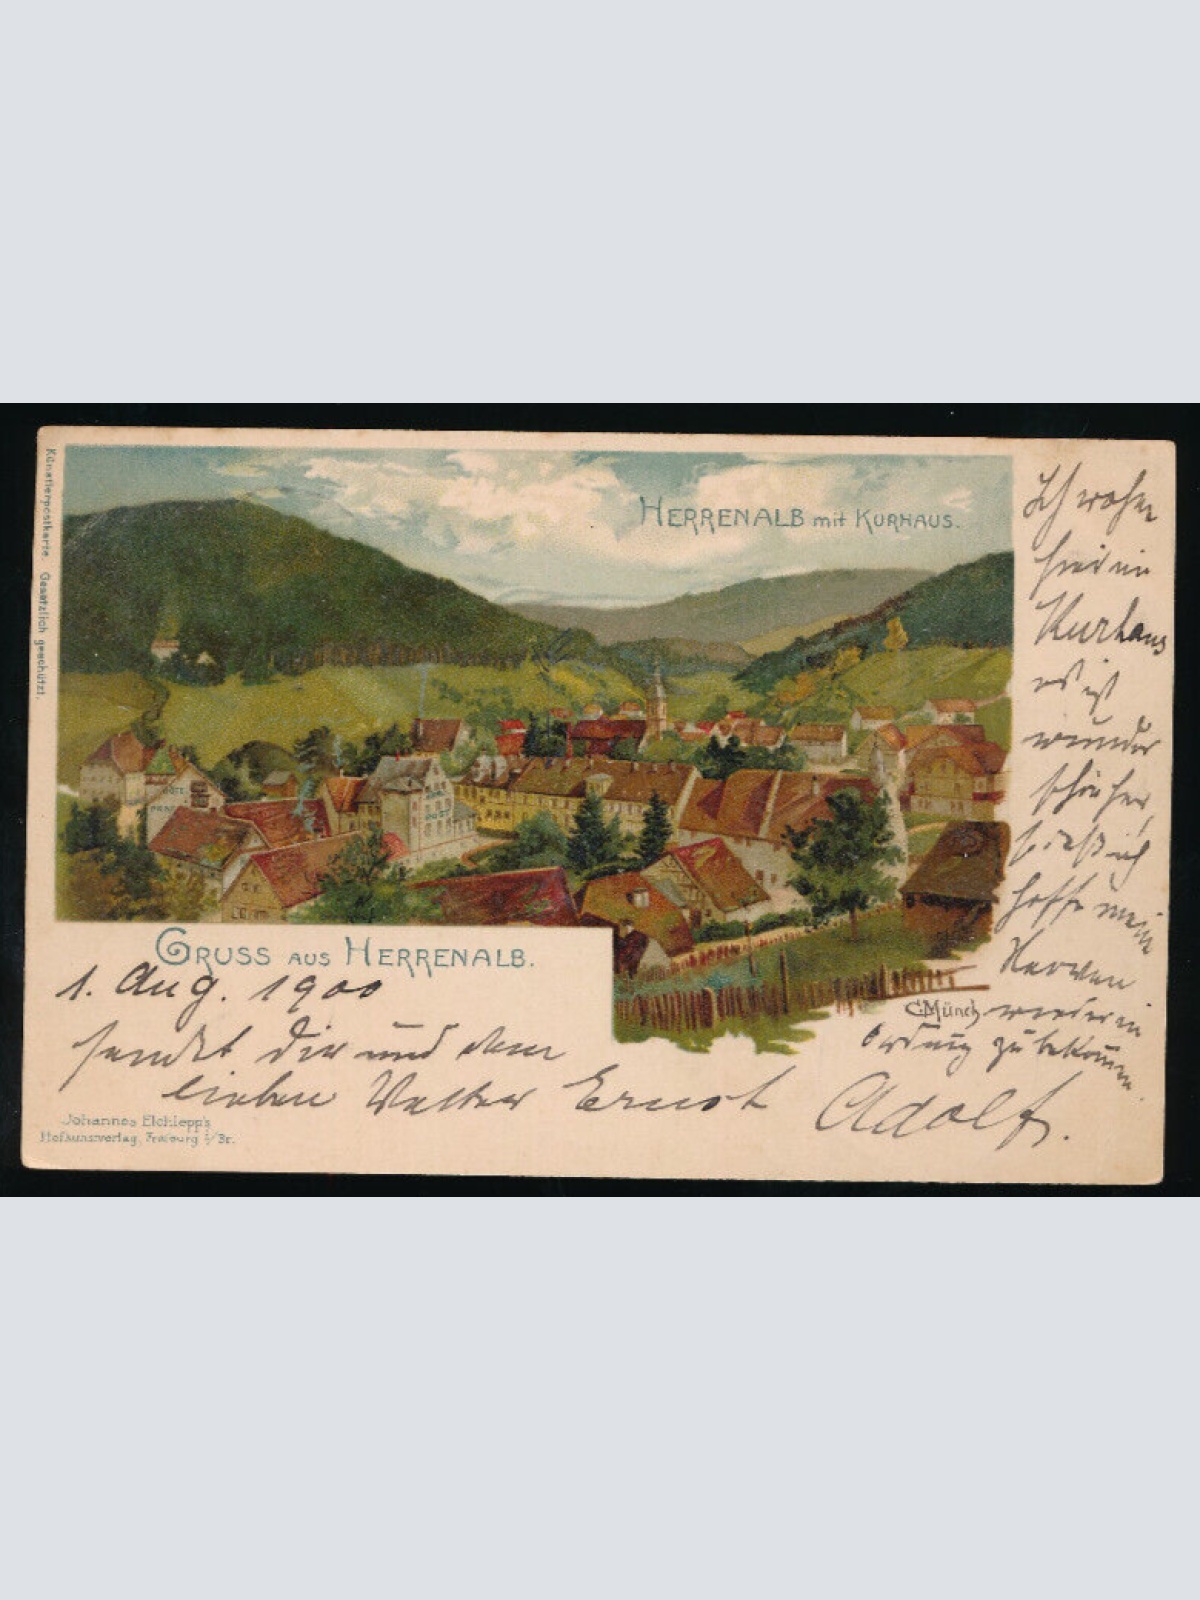 Künstlerpostkarte. Gesetzlich geschützt.
HERRENALB mit KURHAUS.
GRUSS AUS HERRENALB.
1. Aug. 1900
sendet Dir und dem
lieben Vetter Ernst Adolf.
Ich wohne
hier im
Kurhaus
es ist
wunder
schön hier
sodaß ich
hoffe meine
Nerven
wieder in
Ordnung zu bekommen.
C. Münch
HOTEL
POST
Johannes Elchlepp's
Hofkunstverlag, Freiburg i/Br.